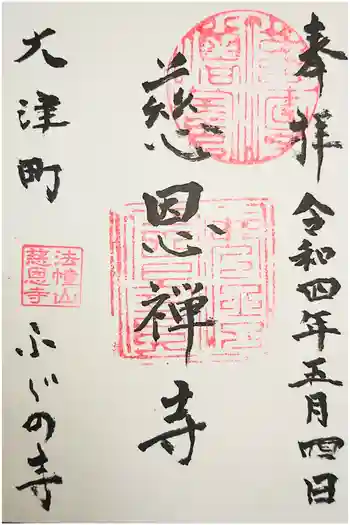 奉拝 令和四年五月四日
慈恩禅寺
大津町 ふじの寺
法幢山
慈恩寺